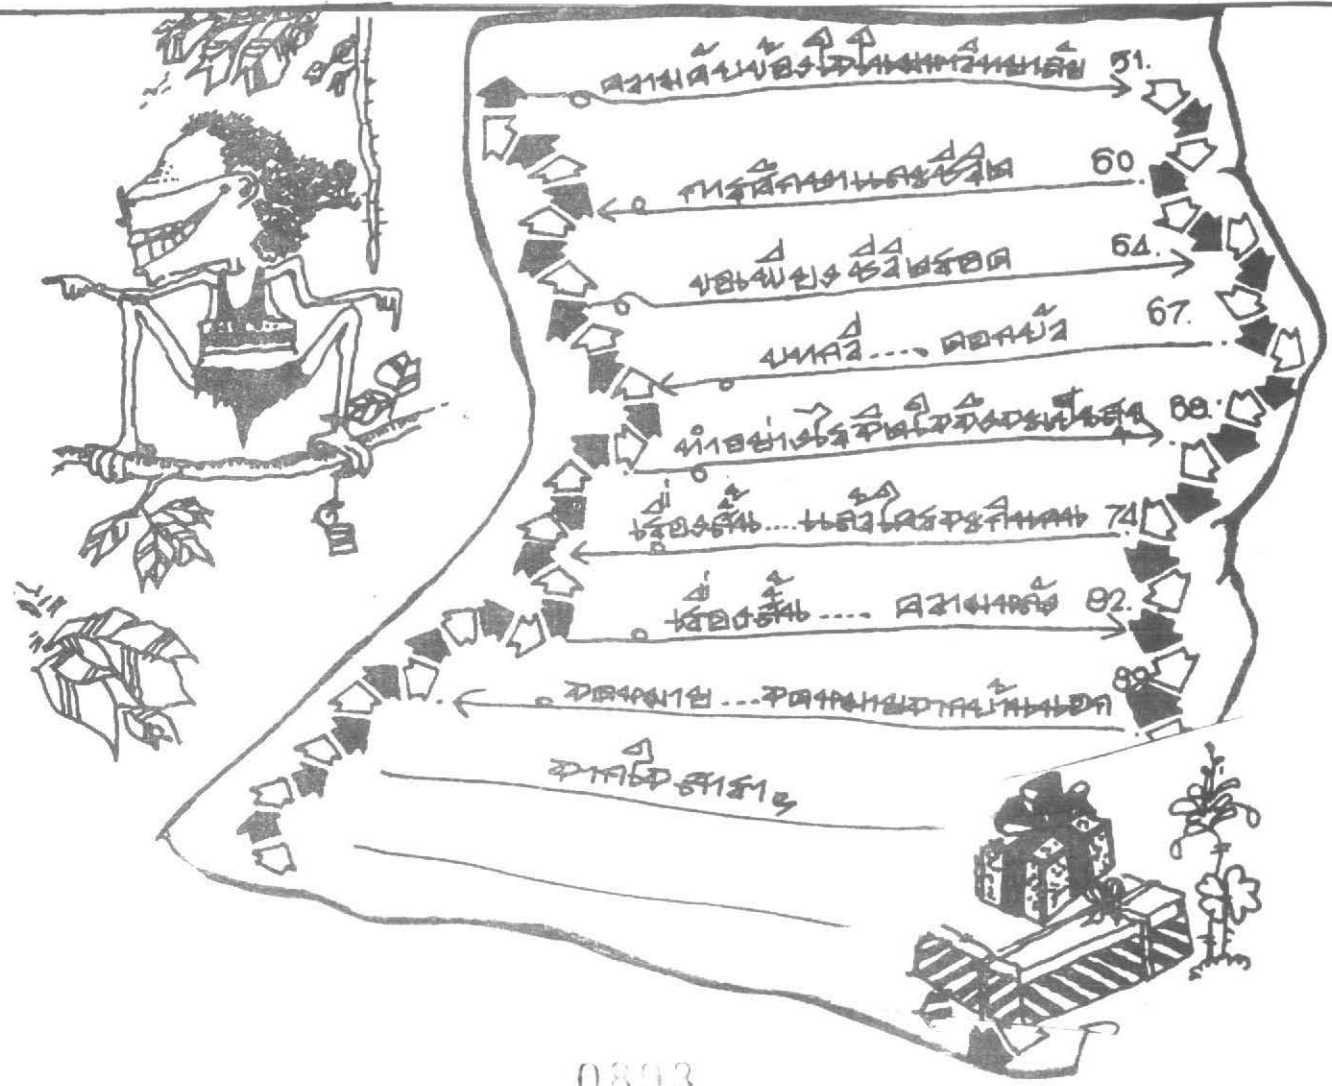 ความคับข้องใจในมหาวิทยาลัย 51.
การศึกษาและชีวิต 60.
ขอเพียงชีวิตรอด 64.
บทกวี.... ดอกบัว 67.
ทำอย่างไรจิตใจจึงจะเป็นสุข 68.
เรื่องสั้น....แล้วใครจะกินแกน 74.
เรื่องสั้น.... ความหลัง 82.
จดหมาย...จดหมายจากบ้านนอก 89.
จากใจสารา ๆ
0893